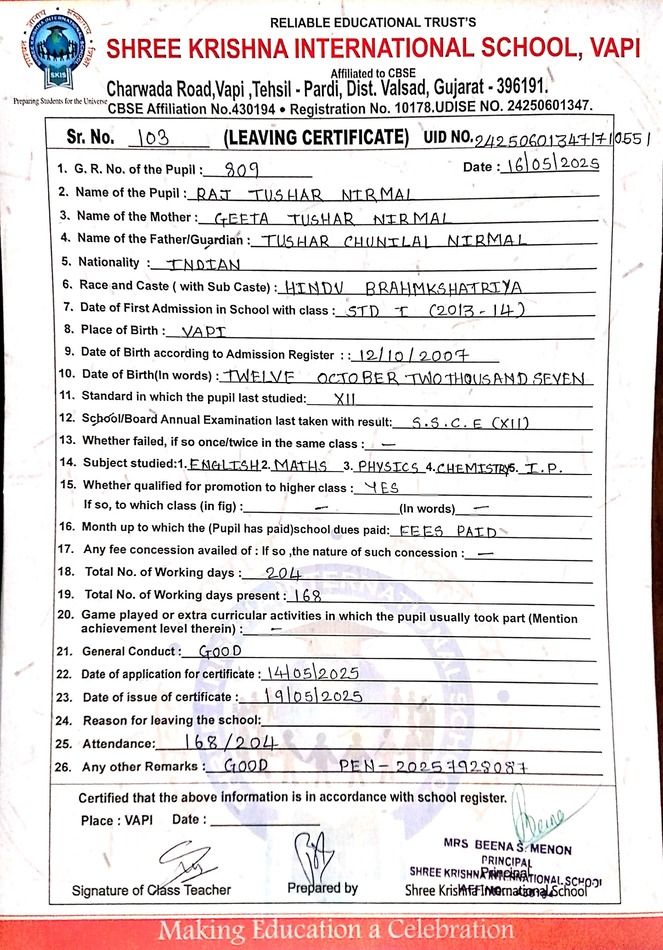 RELIABLE EDUCATIONAL TRUST'S
SHREE KRISHNA INTERNATIONAL SCHOOL, VAPI
Affiliated to CBSE
Charwada Road,Vapi ,Tehsil - Pardi, Dist. Valsad, Gujarat - 396191.
Preparing Students for the Universe
CBSE Affiliation No.430194 • Registration No. 10178.UDISE NO. 24250601347.
SKIS
Sr. No. 103 (LEAVING CERTIFICATE) UID NO.242506013471710551
1. G. R. No. of the Pupil : 809 Date : 16/05/2025
2. Name of the Pupil : RAJ TUSHAR NIRMAL
3. Name of the Mother : GEETA TUSHAR NIRMAL
4. Name of the Father/Guardian : TUSHAR CHUNILAL NIRMAL
5. Nationality : INDIAN
6. Race and Caste ( with Sub Caste) : HINDU BRAHMKSHATRIYA
7. Date of First Admission in School with class : STD I (2013-14)
8. Place of Birth : VAPI
9. Date of Birth according to Admission Register : : 12/10/2007
10. Date of Birth(In words) : TWELVE OCTOBER TWO THOUSAND SEVEN
11. Standard in which the pupil last studied: XII
12. School/Board Annual Examination last taken with result: S.S.C.E (XII)
13. Whether failed, if so once/twice in the same class : —
14. Subject studied:1. ENGLISH 2. MATHS 3. PHYSICS 4. CHEMISTRY 5. I.P.
15. Whether qualified for promotion to higher class : YES
If so, to which class (in fig) : — (In words) —
16. Month up to which the (Pupil has paid)school dues paid: FEES PAID
17. Any fee concession availed of : If so ,the nature of such concession : —
18. Total No. of Working days : 204
19. Total No. of Working days present : 168
20. Game played or extra curricular activities in which the pupil usually took part (Mention
achievement level therein) : —
21. General Conduct : GOOD
22. Date of application for certificate : 14/05/2025
23. Date of issue of certificate : 19/05/2025
24. Reason for leaving the school:
25. Attendance: 168/204
26. Any other Remarks : GOOD PEN-20257928087
Certified that the above information is in accordance with school register.
Place : VAPI Date :
MRS BEENA S. MENON
PRINCIPAL
SHREE KRISHNA INTERNATIONAL SCHOOL
Principal
Signature of Class Teacher Prepared by Shree Krishna International School
Making Education a Celebration